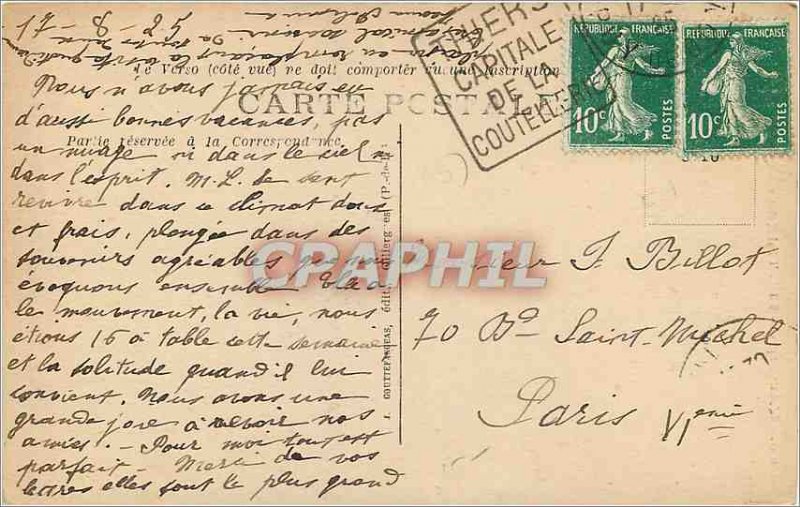 17-8-25
Le Verso (côté vue) ne doit comporter aucune inscription
CARTE POSTALE
Partie réservée à la Correspondance
Nous n'avons jamais eu
d'aussi bonnes vacances, pas
un nuage ni dans le ciel ni
dans l'esprit. M.L. se sent
revivre dans ce climat doux
et frais, plongée dans des
souvenirs agréables que nous
évoquons ensemble. Elle a
le mouvement, la vie, nous
étions 16 à table cette semaine
et la solitude quand il lui
convient. Nous avons une
grande joie à revoir nos
amies. - Pour moi tout est
parfait - Merci de vos
lettres elles font le plus grand
J. GOUTTEFANGEAS, édit.
THIERS
CAPITALE
DE LA
COUTELLERIE
REPUBLIQUE FRANÇAISE
10c
POSTES
REPUBLIQUE FRANÇAISE
10c
POSTES
CPAPHIL
Monsieur J. Billot
70 Bd Saint-Michel
Paris VIème